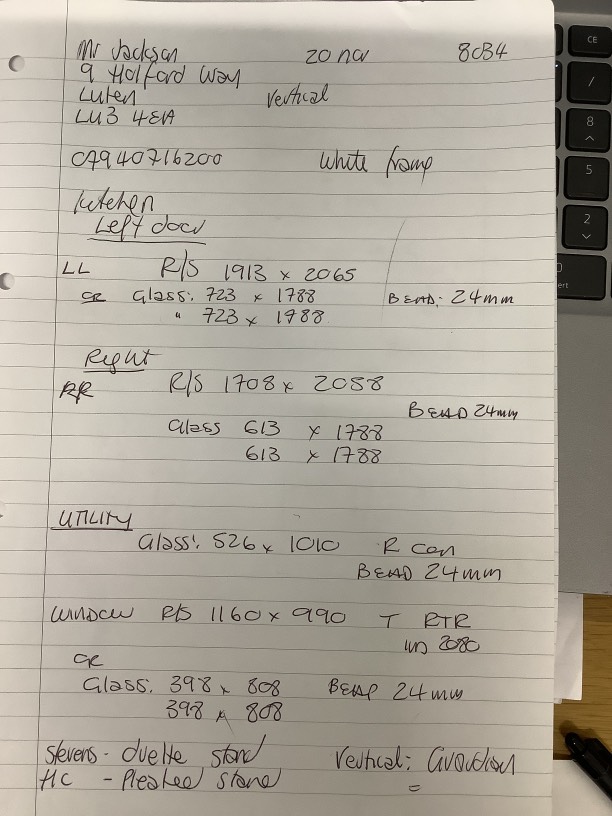 Mr Jackson 20 nov 8034
9 Halford Way
Luton Vertical
LU3 4EA
07940716200 White frame
Kitchen
Left door
LL R/S 1913 x 2065
OR Glass: 723 x 1788 BEAD: 24mm
" 723 x 1788
Right
RR R/S 1708 x 2058
BEAD 24mm
Glass 613 x 1788
613 x 1788
UTILITY
Glass: 526 x 1010 R Con
BEAD 24mm
WINDOW R/S 1160 x 990 T RTR
WD 2080
OR
Glass. 398 x 808 BEAD 24mm
398 x 808
Stevens - duette stand Vertical:
HC - Pleated stand =
CE
/
8
5
2